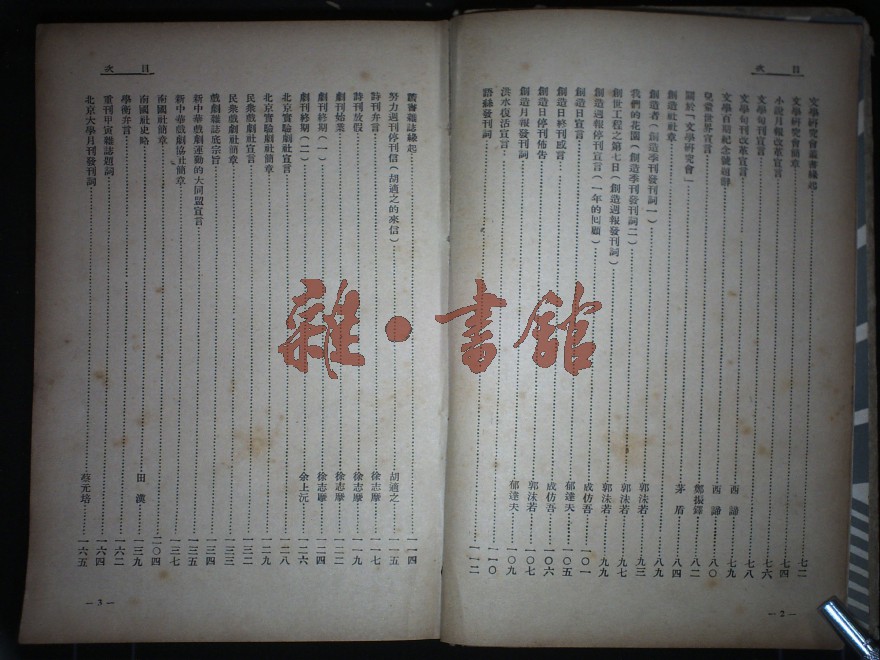 目次
文學研究會叢書緣起……七二
文學研究會簡章……七四
小說月報改革宣言……七六
文學旬刊宣言……七八
文學旬刊改革宣言……西諦……七九
文學百期紀念號題辭……西諦……八〇
兒童世界宣言……鄭振鐸……八二
關於「文學研究會」……茅盾……八四
創造社社章……八九
創造者(創造季刊發刊詞一)……郭沫若……九三
我們的花園(創造季刊發刊詞二)……郭沫若……九七
創世工程之第七日(創造週報發刊詞)……郭沫若……九九
創造週報停刊宣言(一年的回顧)……成仿吾……一〇一
創造日宣言……郁達夫……一〇五
創造日終刊感言……成仿吾……一〇六
創造日停刊佈告……郭沫若……一〇九
創造月報發刊詞……郁達夫……一〇九
洪水復活宣言……一一〇
語絲發刊詞……一一二
—2—
目次
讀書雜誌緣起……一一四
努力週刊停刊信(胡適之的來信)……胡適之……一一五
詩刊弁言……徐志摩……一一七
詩刊放假……徐志摩……一一九
劇刊始業……徐志摩……一二二
劇刊終期(一)……徐志摩……一二四
劇刊終期(二)……余上沅……一二六
北京實驗劇社宣言……一二八
北京實驗劇社簡章……一二九
民衆戲劇社宣言……一三二
民衆戲劇社簡章……一三三
戲劇雜誌底宗旨……一三四
新中華戲劇運動的大同盟宣言……一三五
新中華戲劇協社簡章……一三七
南國社簡章……一〇四
南國社史略……田漢……一三九
學衡弁言……一六二
重刊甲寅雜誌題詞……一六四
北京大學月刊發刊詞……蔡元培……一六五
—3—
雜·書館